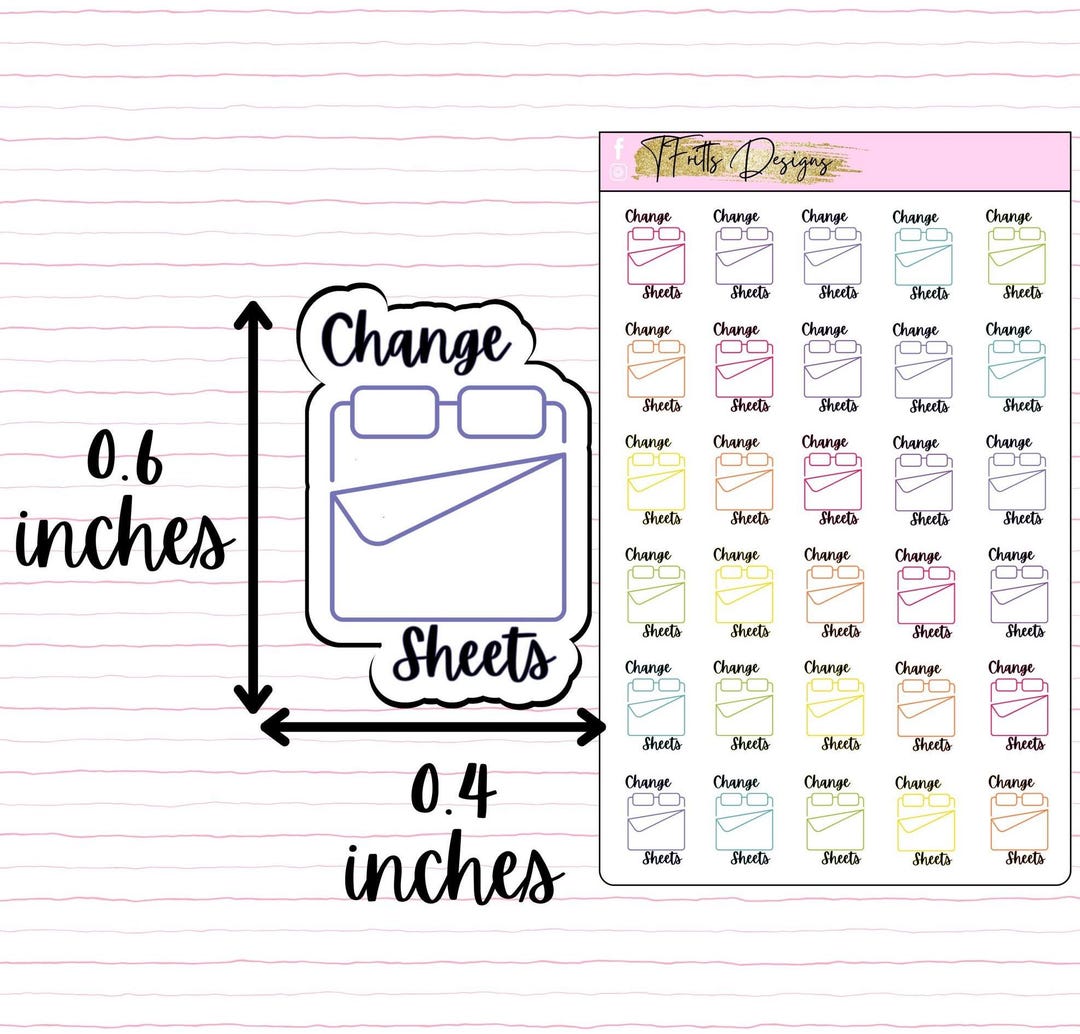 TFritts Designs
Change Change Change Change Change
Sheets Sheets Sheets Sheets Sheets
Change Change Change Change Change
Sheets Sheets Sheets Sheets Sheets
Change Change Change Change Change
Sheets Sheets Sheets Sheets Sheets
Change Change Change Change Change
Sheets Sheets Sheets Sheets Sheets
Change Change Change Change Change
Sheets Sheets Sheets Sheets Sheets
Change Change Change Change Change
Sheets Sheets Sheets Sheets Sheets
Change
Sheets
0.6
inches
0.4
inches